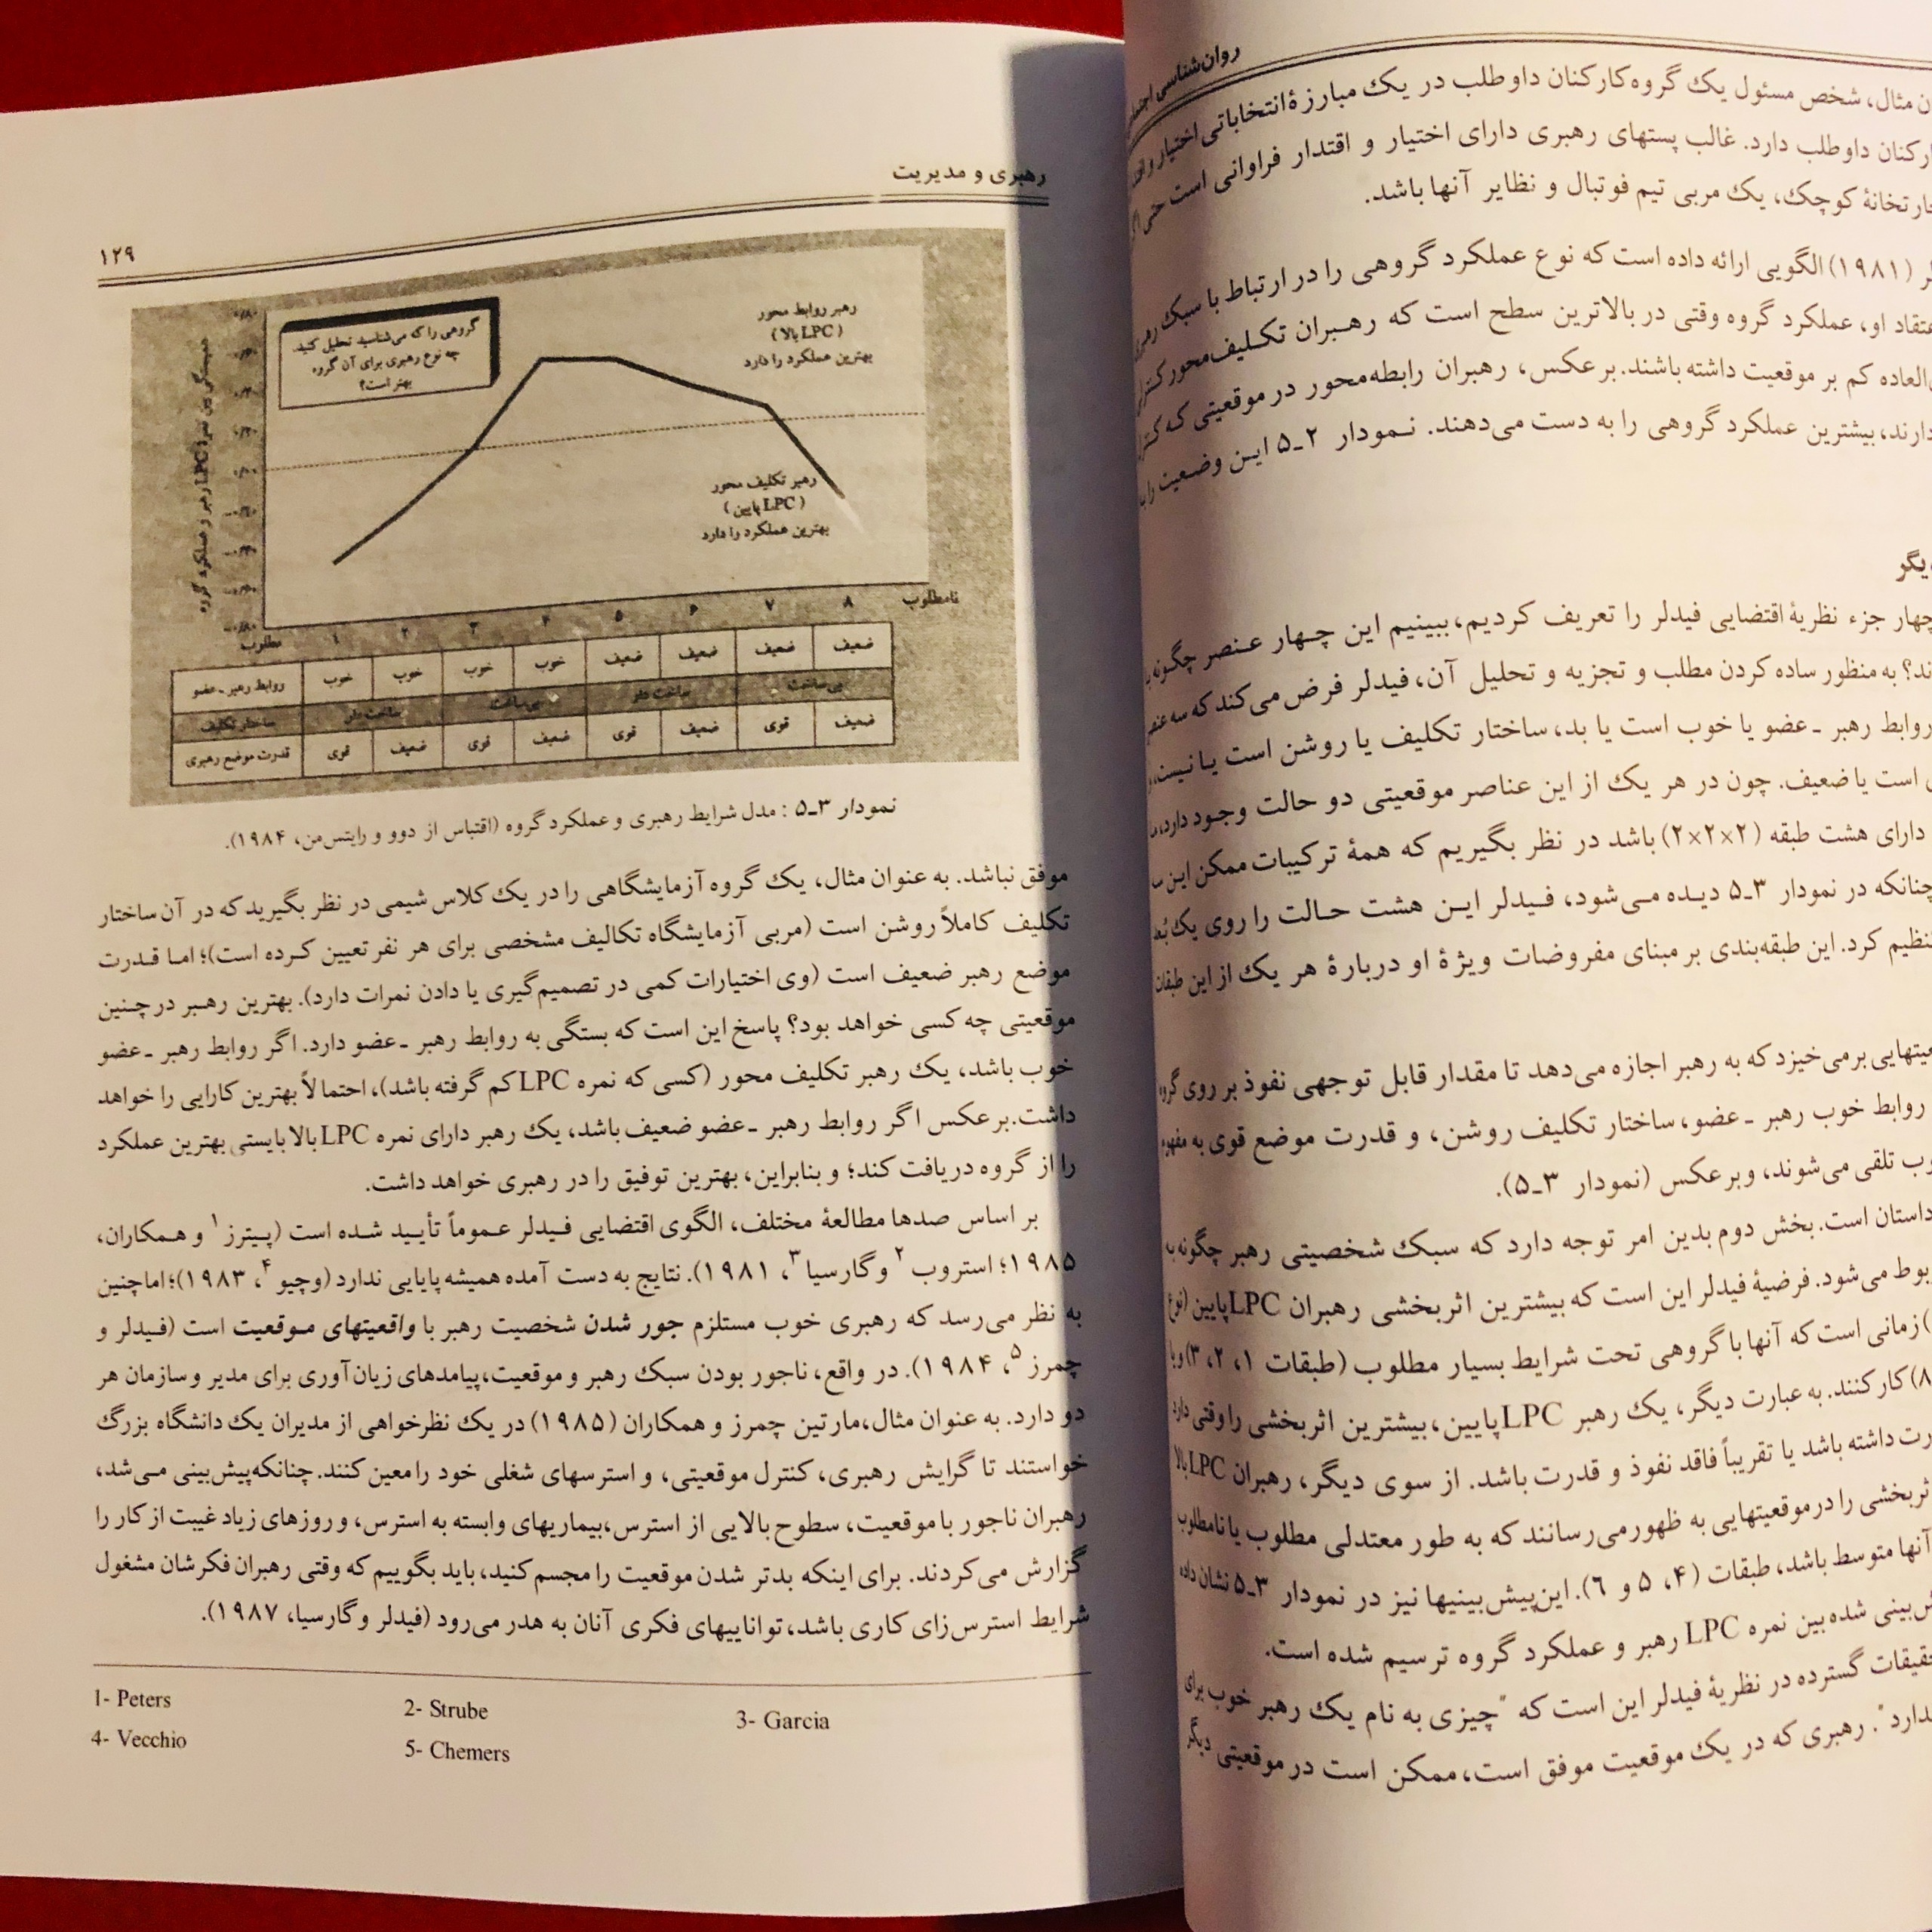 روان‌شناسی
ن مثال، شخص مسئول یک گروه کارکنان داوطلب در یک مبارزهٔ انتخاباتی اختیار و
ارکنان داوطلب دارد. غالب پستهای رهبری دارای اختیار و اقتدار فراوانی است حتی
کوچک، یک مربی تیم فوتبال و نظایر آنها باشد.
ر (۱۹۸۱) الگویی ارائه داده است که نوع عملکرد گروهی را در ارتباط با سبک
عتقاد او، عملکرد گروه وقتی در بالاترین سطح است که رهبران تکلیف‌محور
العاده کم بر موقعیت داشته باشند. برعکس، رهبران رابطه‌محور در موقعیتی که
دارند، بیشترین عملکرد گروهی را به دست می‌دهند. نمودار ۲ـ۵ این وضعیت را
یگر
چهار جزء نظریهٔ اقتضایی فیدلر را تعریف کردیم، ببینیم این چهار عنصر چگونه
ند؟ به منظور ساده کردن مطلب و تجزیه و تحلیل آن، فیدلر فرض می‌کند که سه
روابط رهبر ـ عضو یا خوب است یا بد، ساختار تکلیف یا روشن است یا نیست،
است یا ضعیف. چون در هر یک از این عناصر موقعیتی دو حالت وجود دارد،
دارای هشت طبقه (۲×۲×۲) باشد در نظر بگیریم که همهٔ ترکیبات ممکن این
چنانکه در نمودار ۳ـ۵ دیده می‌شود، فیدلر این هشت حالت را روی یک
تنظیم کرد. این طبقه‌بندی بر مبنای مفروضات ویژهٔ او دربارهٔ هر یک از این طبقات
عیتهایی برمی‌خیزد که به رهبر اجازه می‌دهد تا مقدار قابل توجهی نفوذ بر روی گروه
روابط خوب رهبر ـ عضو، ساختار تکلیف روشن، و قدرت موضع قوی به
تلقی می‌شوند، و برعکس (نمودار ۳ـ۵).
داستان است. بخش دوم بدین امر توجه دارد که سبک شخصیتی رهبر چگونه به
بوط می‌شود. فرضیهٔ فیدلر این است که بیشترین اثربخشی رهبران LPC پایین (نوع
) زمانی است که آنها با گروهی تحت شرایط بسیار مطلوب (طبقات ۱، ۲، ۳) و یا
۸) کار کنند. به عبارت دیگر، یک رهبر LPC پایین، بیشترین اثربخشی را وقتی دارد
رت داشته باشد یا تقریباً فاقد نفوذ و قدرت باشد. از سوی دیگر، رهبران LPC بالا
ثربخشی را در موقعیتهایی به ظهور می‌رسانند که به طور معتدلی مطلوب یا نامطلوب
آنها متوسط باشد، طبقات (۴، ۵ و ۶). این پیش‌بینیها نیز در نمودار ۳ـ۵ نشان داده
ش‌بینی شده بین نمره LPC رهبر و عملکرد گروه ترسیم شده است.
حقیقات گسترده در نظریهٔ فیدلر این است که "چیزی به نام یک رهبر خوب برای
ندارد". رهبری که در یک موقعیت موفق است، ممکن است در موقعیتی دیگر
رهبری و مدیریت
۱۲۹
گروهی را که می‌شناسید تحلیل کنید.
چه نوع رهبری برای آن گروه
بهتر است؟
رهبر روابط محور
(LPC بالا)
بهترین عملکرد را دارد
رهبر تکلیف محور
(LPC پایین)
بهترین عملکرد را دارد
مطلوب ۱ ۲ ۳ ۴ ۵ ۶ ۷ ۸ نامطلوب
روابط رهبر ـ عضو خوب خوب خوب خوب ضعیف ضعیف ضعیف ضعیف
ساختار تکلیف ساخت دار بی‌ساخت ساخت دار بی‌ساخت
قدرت موضع رهبری قوی ضعیف قوی ضعیف قوی ضعیف قوی ضعیف
نمودار ۳ـ۵ : مدل شرایط رهبری و عملکرد گروه (اقتباس از دوو و رایتس‌من، ۱۹۸۴).
موفق نباشد. به عنوان مثال، یک گروه آزمایشگاهی را در یک کلاس شیمی در نظر بگیرید که در آن ساختار
تکلیف کاملاً روشن است (مربی آزمایشگاه تکالیف مشخصی برای هر نفر تعیین کرده است)؛ اما قدرت
موضع رهبر ضعیف است (وی اختیارات کمی در تصمیم‌گیری یا دادن نمرات دارد). بهترین رهبر در چنین
موقعیتی چه کسی خواهد بود؟ پاسخ این است که بستگی به روابط رهبر ـ عضو دارد. اگر روابط رهبر ـ عضو
خوب باشد، یک رهبر تکلیف محور (کسی که نمره LPC کم گرفته باشد)، احتمالاً بهترین کارایی را خواهد
داشت. برعکس اگر روابط رهبر ـ عضو ضعیف باشد، یک رهبر دارای نمره LPC بالا بایستی بهترین عملکرد
را از گروه دریافت کند؛ و بنابراین، بهترین توفیق را در رهبری خواهد داشت.
بر اساس صدها مطالعهٔ مختلف، الگوی اقتضایی فیدلر عموماً تأیید شده است (پیترز۱ و همکاران،
۱۹۸۵؛ استروب۲ و گارسیا۳، ۱۹۸۱). نتایج به دست آمده همیشه پایایی ندارد (وچیو۴، ۱۹۸۳)؛ اما چنین
به نظر می‌رسد که رهبری خوب مستلزم جور شدن شخصیت رهبر با واقعیتهای موقعیت است (فیدلر و
چمرز۵، ۱۹۸۴). در واقع، ناجور بودن سبک رهبر و موقعیت، پیامدهای زیان‌آوری برای مدیر و سازمان هر
دو دارد. به عنوان مثال، مارتین چمرز و همکاران (۱۹۸۵) در یک نظرخواهی از مدیران یک دانشگاه بزرگ
خواستند تا گرایش رهبری، کنترل موقعیتی، و استرسهای شغلی خود را معین کنند. چنانکه پیش‌بینی می‌شد،
رهبران ناجور با موقعیت، سطوح بالایی از استرس، بیماریهای وابسته به استرس، و روزهای زیاد غیبت از کار را
گزارش می‌کردند. برای اینکه بدتر شدن موقعیت را مجسم کنید، باید بگوییم که وقتی رهبران فکرشان مشغول
شرایط استرس‌زای کاری باشد، تواناییهای فکری آنان به هدر می‌رود (فیدلر و گارسیا، ۱۹۸۷).
1- Peters 2- Strube 3- Garcia
4- Vecchio 5- Chemers